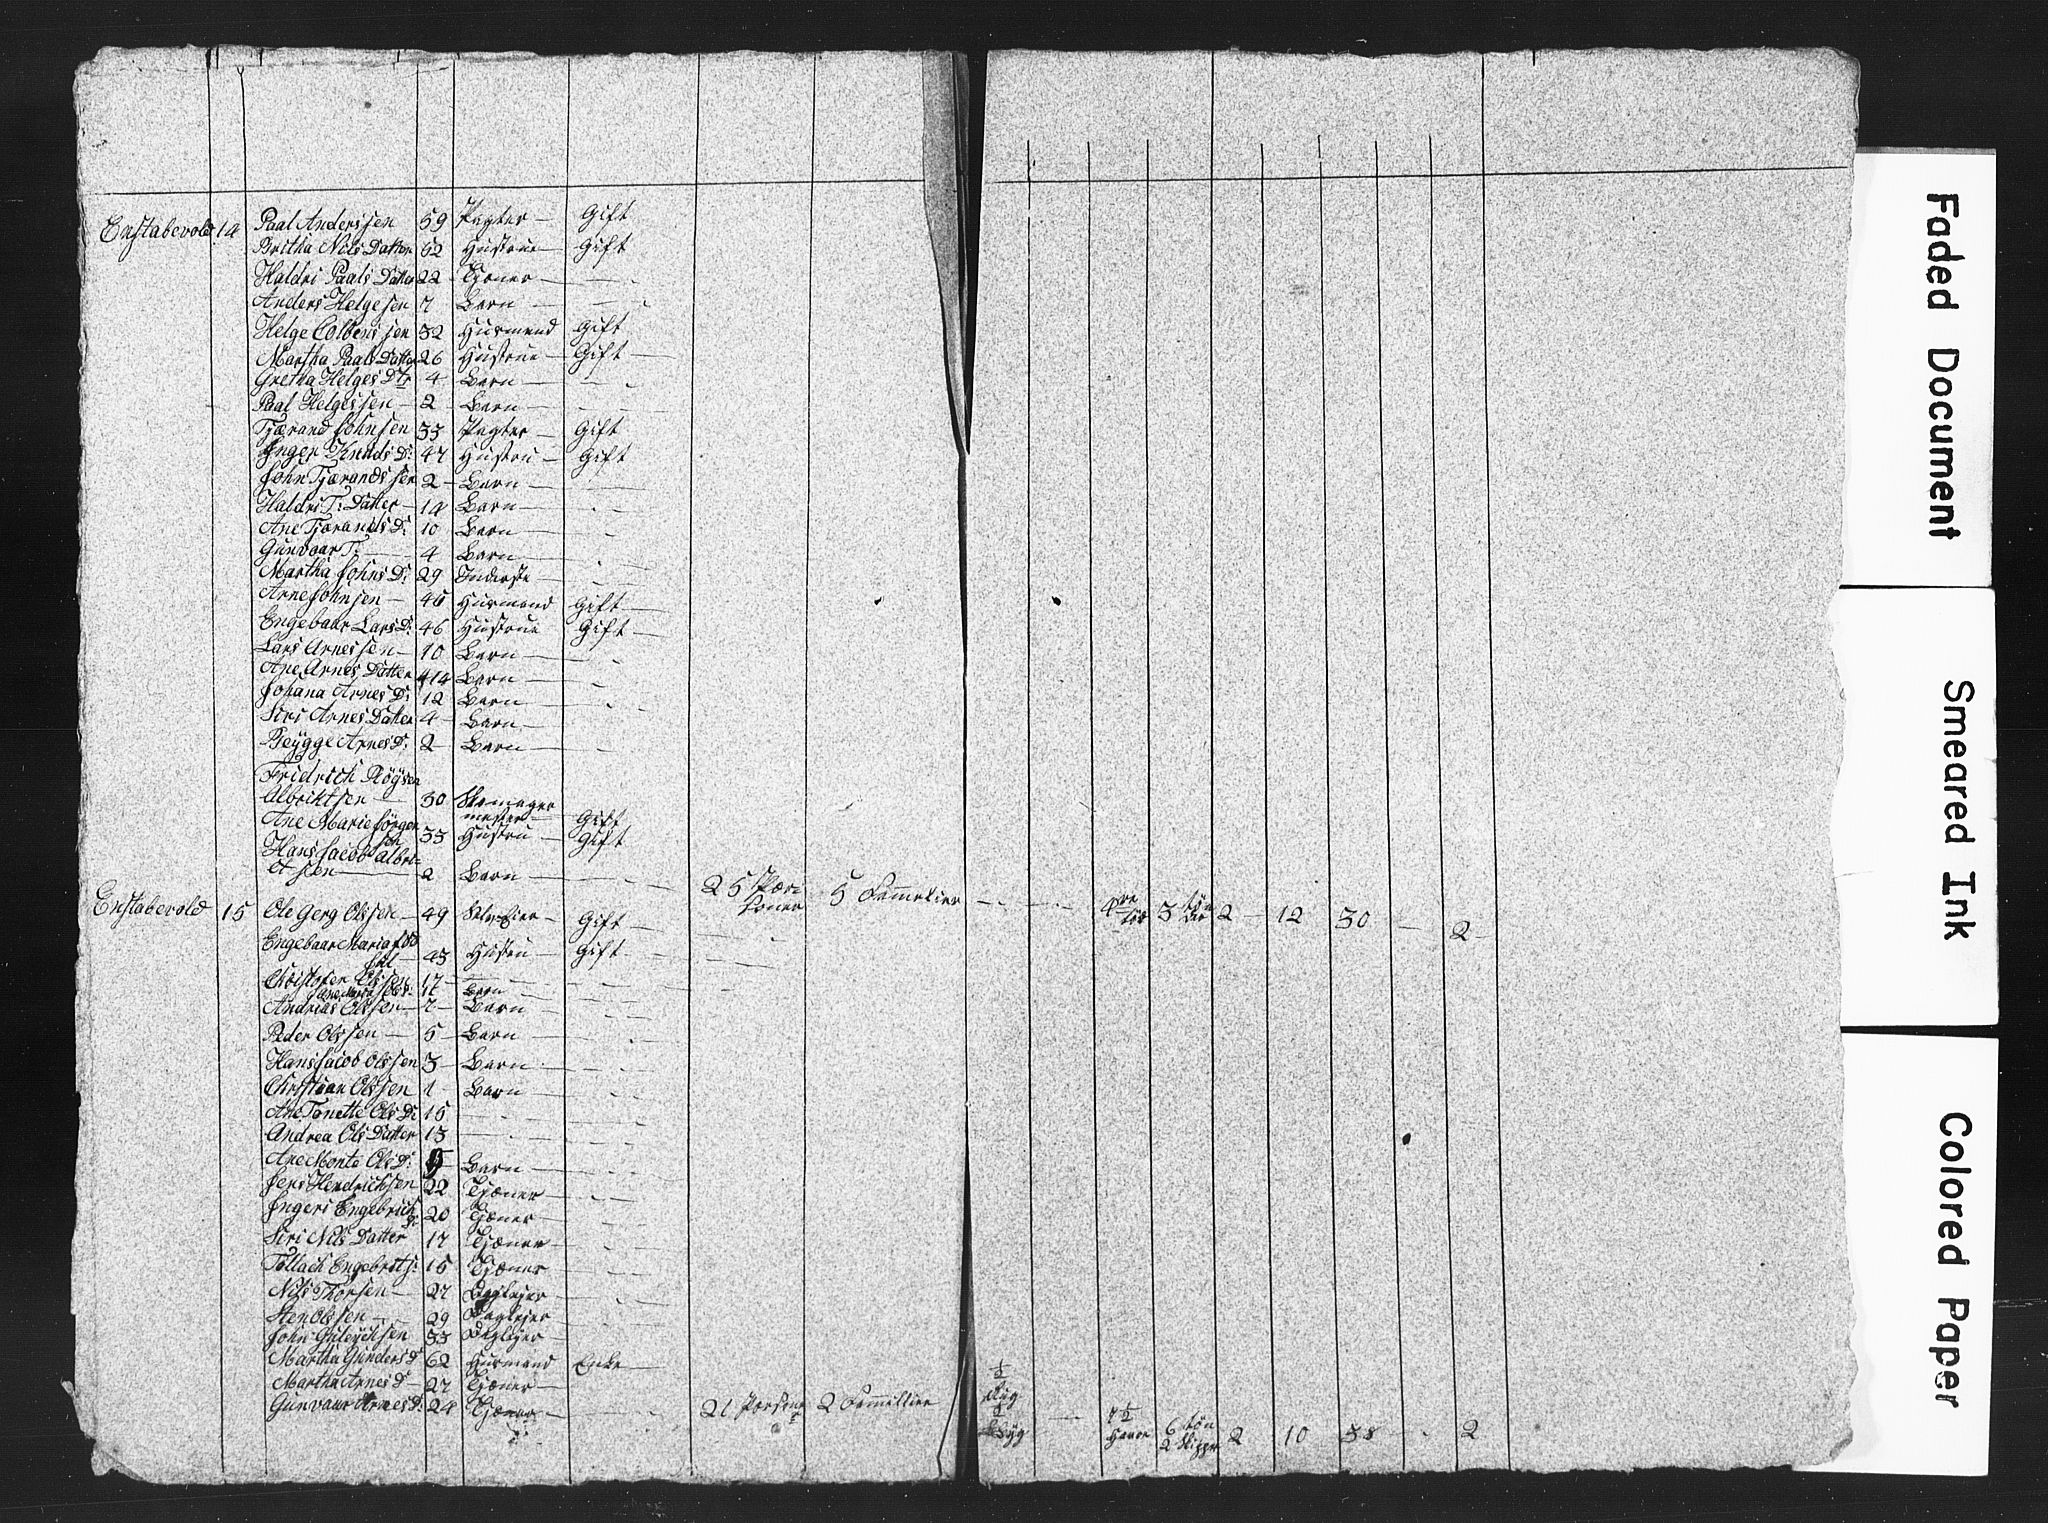 Enstabevold 14 Paal Anderssen 59 Pagter — Gift
Britha Nils Datter 62 Hustrue — Gift
Haldri Paals Datter 22 Tjener —
Anders Helgesen 7 Barn —
Helge Colbenssen 32 Husmand Gift
Martha Paals Datter 26 Hustrue — Gift —
Gretha Helges Dtr 4 — Barn —
Paal Helgessen — 2 — Barn —
Tjærand Johnsen 33 Pagter — Gift
Inger Knuds D: 47 Hustru — Gift
John Tjærandssen 2 — Barn —
Haldri T: Datter — 14 Barn —
Ane Tjærands D: 10 Barn —
Gunvoar T: — 4 Barn —
Martha Johns D: 29 Inderste —
Arne Johnsen — 46 Husmand Gift —
Engebaar Lars D: 46 Hustrue Gift —
Lars Arnessen — 10 Barn —
Ane Arnes Datter 14 Barn —
Johana Arnes D: 12 Barn —
Siri Arnes Datter 4 — Barn —
Beÿgge Arnes D: 2 — Barn —
Fridrich Röÿsen
Albriktsen — 30 Skomager
mester — Gift
Ane Marie Jörgen
sen 33 Hustru — Gift
Hans Jacob Albri-
ctsen — 2 Barn — 25 Persi
soner 5 Familier 4 3 tön
der 2 — 12 30 — 2 —
Enstabevold 15 Ole Gerg Olssen — 49 Gift —
Engebaar Maria
43 Hustru — Gift —
Christofer Olssen 17 —
17 Barn
Andrias Olssen — 7 — Barn —
Peder Olssen — 5 — Barn —
Hans Jacob Olssen 3 — Barn —
Christian Olssen 1 — Barn —
Ane Tonette Ols D: 15
Andrea Ols Datter 13
Ane Monte Ols D: Barn —
Jens Hendrichsen 22 Tjæner —
Ingeri Engebrich
D: 20 Tjæner —
Siri Nils Datter 17 Tjæner —
Tollach Engebrets: 15 Tjæner
Nils Thorsen — 27 Daglejer
Sten Olssen — 29 Daglejer
John 33 Daglejer —
Martha Gunders D 62 Husmand Enke —
Martha Arnes D — 27 Tjæner —
Gunvaar Arnes D: 24 Tjæner — 21 Persone 2 Familier
1/2
Rug
1/2
Bÿg — 7 1/2
Havre 6 tön
2 Skippr 2 10 38 - 2
Faded Document
Smeared Ink
Colored Paper